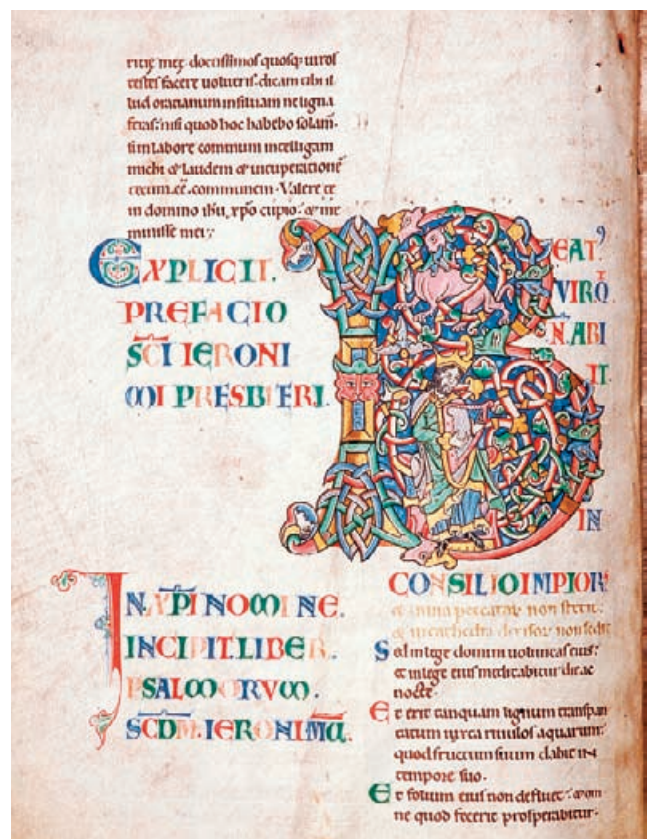 ritię męę doctissimos quosq; uiros
testes facere uolueris: dicam tibi il
lud oratianum in siluam ne ligna
feras: nisi quod hoc habebo solam̄
si in labore commun intelligam
michi & laudem & uituperationē
tecum. eē. communem. Valere te
in domino ihū xp̄o cupio: & me
minisse mei;
EXPLICIT.
PREFACIO
SC̄I IERONI
MI PRESBITERI.
IN XP̄I NOMINE.
INCIPIT. LIBER
PSALMORVM.
SCD̄M. IERONIMŪ.
BEATꝰ
VIR Q̄
N̄. ABI
IT
IN
CONSILIO IMPIOꝜ
& in uia peccatoꝝ non stetit:
& in cathedra derisoꝝ non sedit
Sed in lege domini uoluntas eius:
& in lege eius meditabitur die ac
nocte.
Et erit tanquam lignum transplan
tatum iuxta riuulos aquarum:
quod fructum suum dabit in
tempore suo.
Et folium eius non defluet: & om
ne quod fecerit prosperabitur.